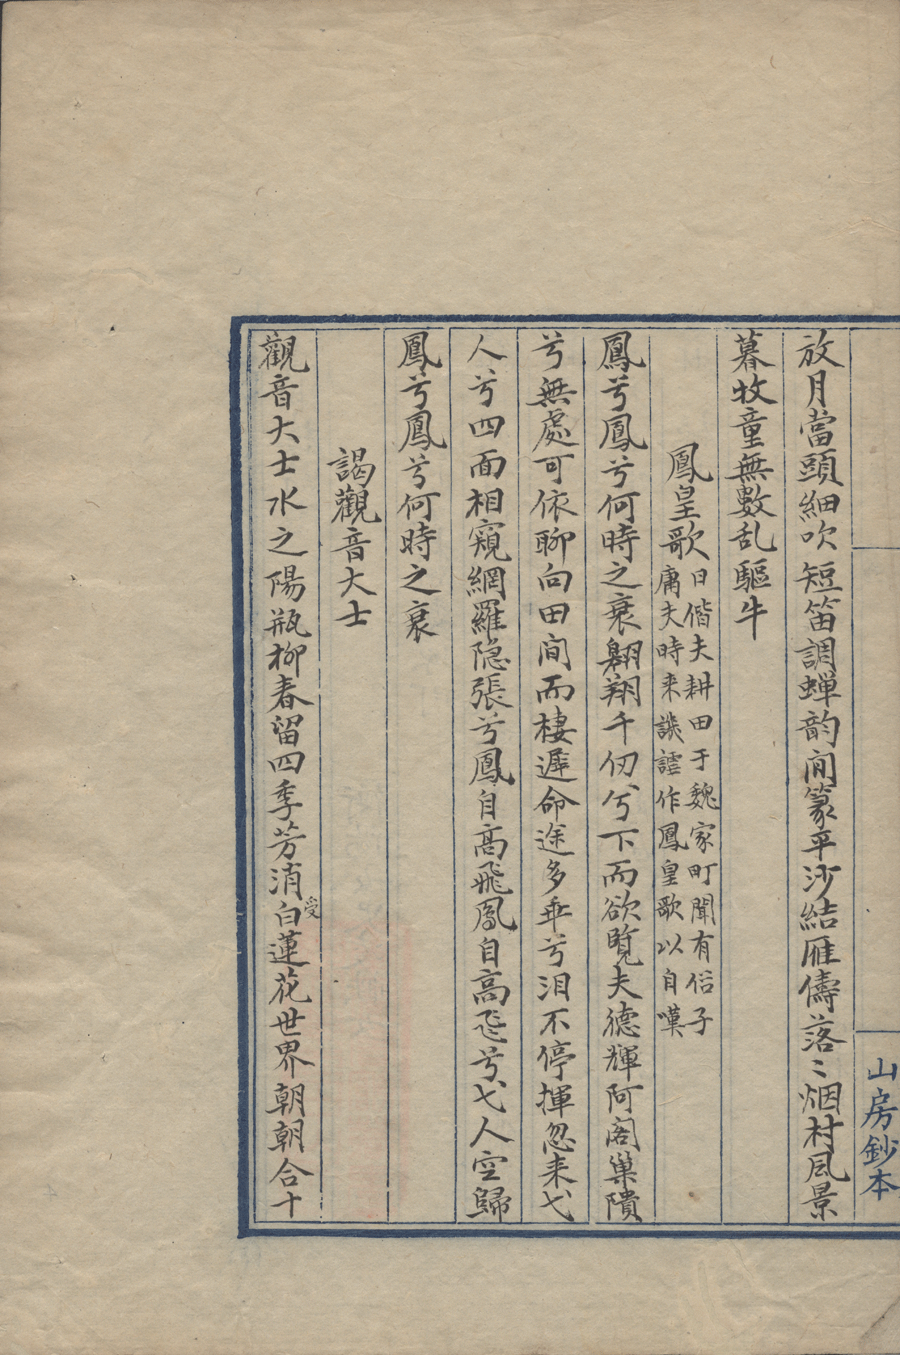 山房鈔本
放月當頭細吹短笛調蝉韵閒篆平沙結雁儔落〻烟村風景
暮牧童無數乱驅牛
鳳皇歌
日偕夫耕田于魏家町聞有俗子
庸夫時来誒謔作鳳皇歌以自嘆
鳳兮鳳兮何時之衰翱翔千仞兮下而欲覽夫德輝阿閣巢隤
兮無處可依聊向田间而棲遲命途多乖兮泪不停揮忽来弋
人兮四面相窺網羅隐張兮鳳自高飛鳳自高飞兮弋人空歸
鳳兮鳳兮何時之衰
謁觀音大士
觀音大士水之陽瓶柳春留四季芳消受白蓮花世界朝朝合十